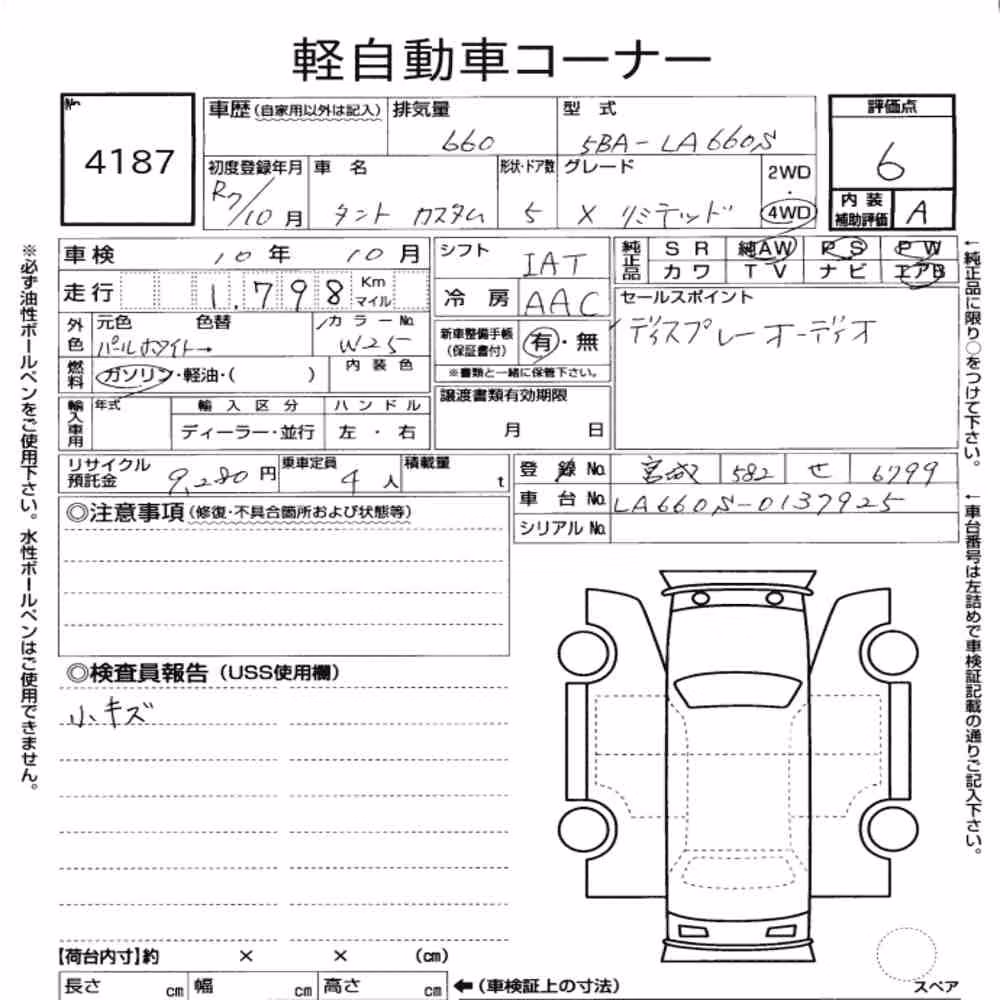 軽自動車コーナー
No. 4187
車歴(自家用以外は記入) 排気量 660 型式 5BA-LA660S
初度登録年月 R7/10月 車名 タント カスタム 形状・ドア数 5 グレード X リミテッド 2WD・4WD
評価点 6
内装補助評価 A
車検 10年 10月
走行 1.798 Km マイル
外色 元色 パールホワイト→ 色替 カラーNo. W25
燃料 ガソリン・軽油・( ) 内装色
輸入車用 年式 輸入区分 ディーラー・並行 ハンドル 左・右
リサイクル預託金 9,280円 乗車定員 4人 積載量 t
シフト IAT
冷房 AAC
新車整備手帳(保証書付) 有・無
※書類と一緒に保管下さい。
譲渡書類有効期限
月 日
純正品 SR 純AW PS PW
カワ TV ナビ エアB
セールスポイント
ディスプレーオーディオ
登録No. 宮城 582 せ 6799
車台No. LA660S-0137925
シリアルNo.
◎注意事項(修復・不具合箇所および状態等)
◎検査員報告(USS使用欄)
小キズ
【荷台内寸】約 × × (cm)
長さ cm 幅 cm 高さ cm ←(車検証上の寸法)
スペア
※必ず油性ボールペンをご使用下さい。水性ボールペンはご使用できません。
←純正品に限り○をつけて下さい。
←車台番号は左詰めで車検証記載の通りご記入下さい。